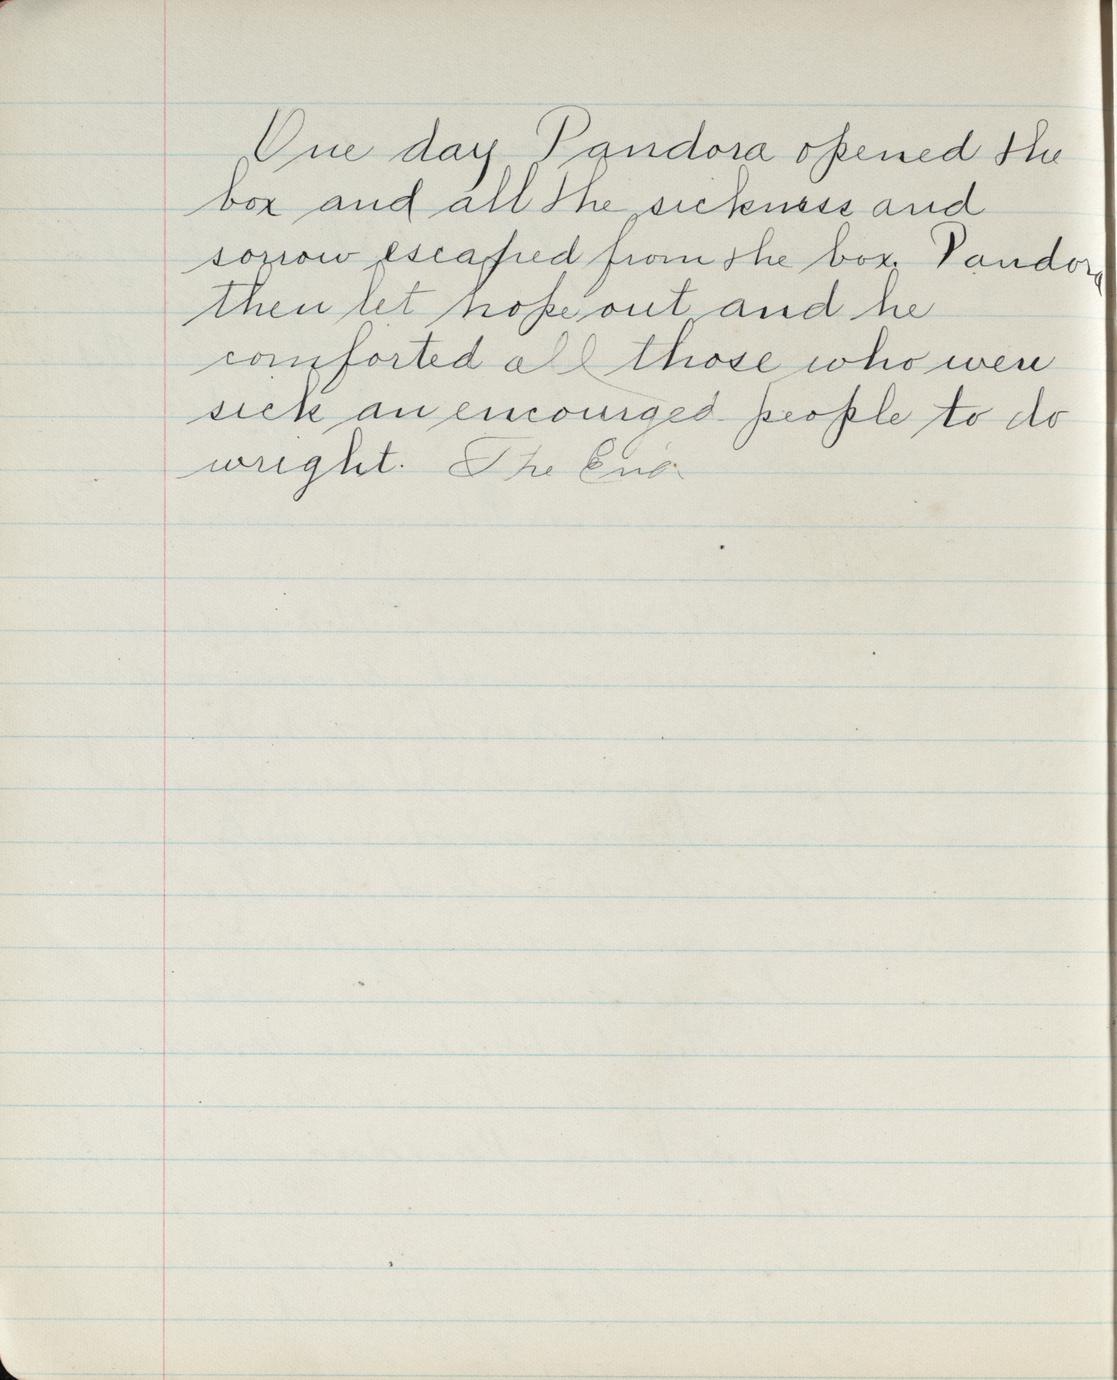 One day Pandora opened the
box and all the sickness and
sorrow escaped from the box. Pandora
then let hope out and he
comforted all those who were
sick an encourged people to do
wright. The End.